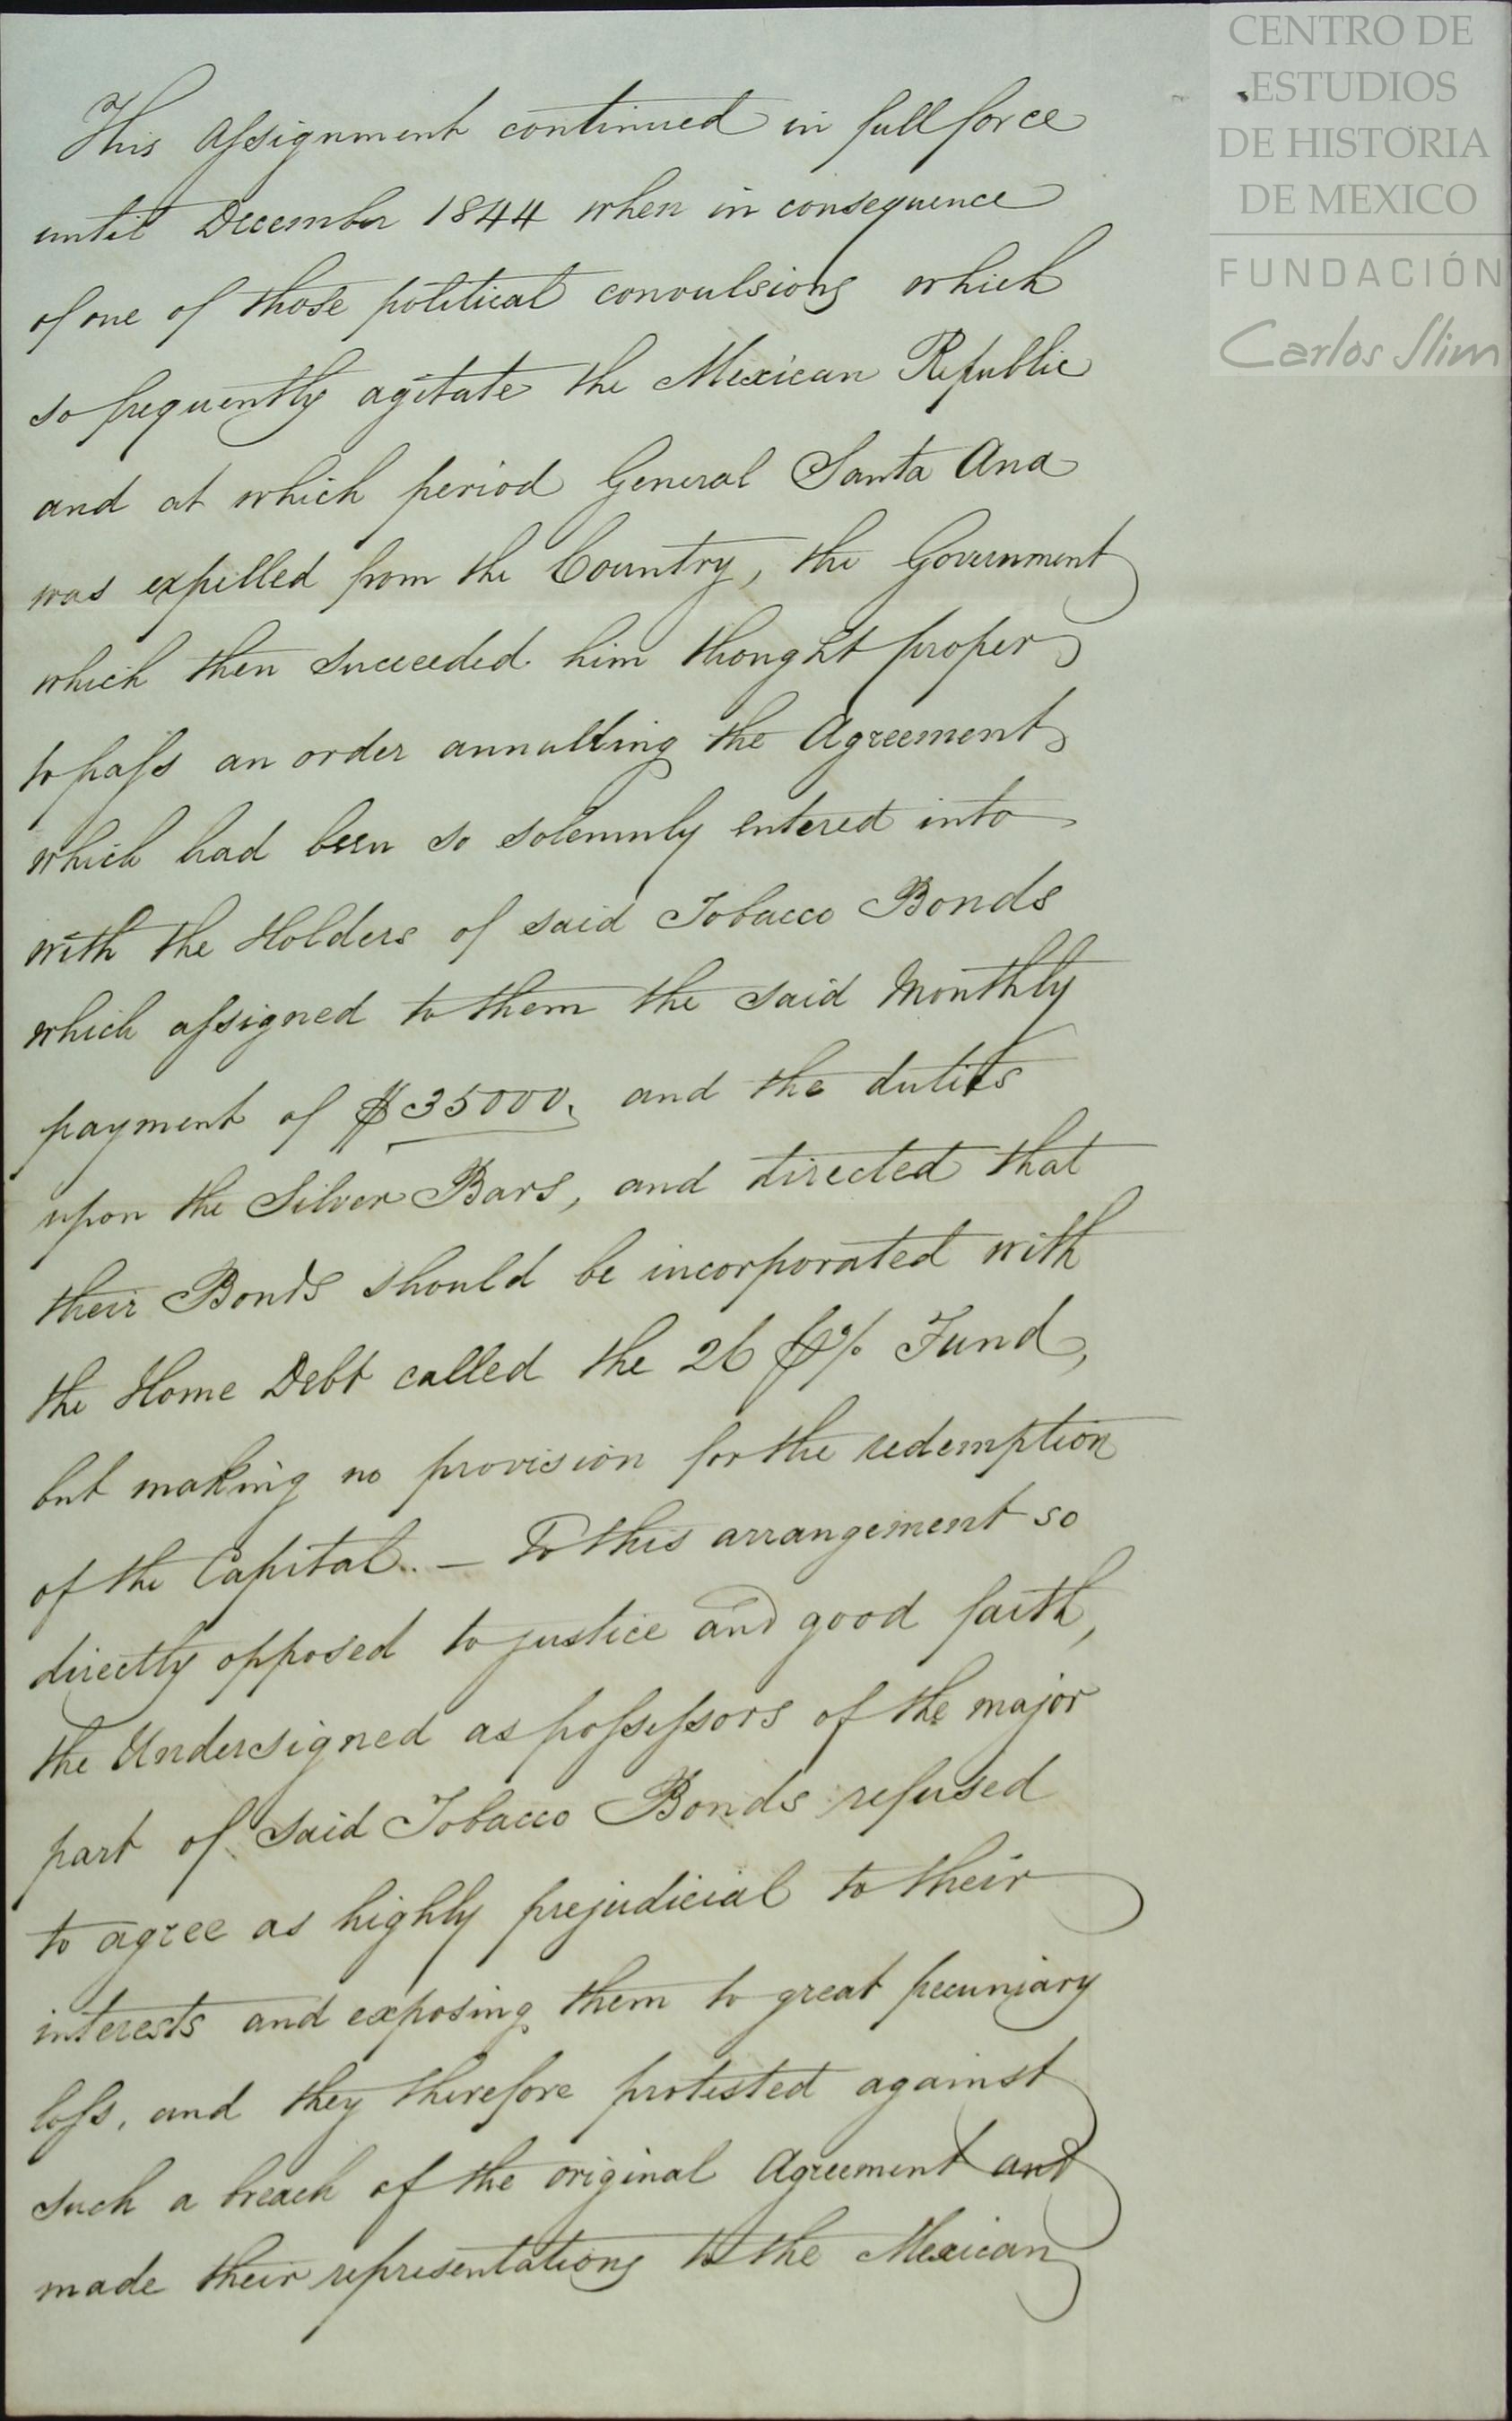 CENTRO DE
ESTUDIOS
DE HISTORIA
DE MEXICO
FUNDACIÓN
Carlos Slim
This Assignment continued in full force
until December 1844 when in consequence
of one of those political convulsions which
so frequently agitate the Mexican Republic
and at which period General Santa Ana
was expelled from the Country, the Government
which then succeeded him thought proper
to pass an order annulling the Agreement
which had been so solemnly entered into
with the Holders of said Tobacco Bonds
which assigned to them the said Monthly
payment of $35000, and the duties
upon the Silver Bars, and directed that
their Bonds should be incorporated with
the Home Debt called the 26 p% Fund,
but making no provision for the redemption
of the Capital. — To this arrangement so
directly opposed to justice and good faith,
the Undersigned as possessors of the major
part of said Tobacco Bonds refused
to agree as highly prejudicial to their
interests and exposing them to great pecuniary
loss, and they therefore protested against
such a breach of the original Agreement and
made their representations to the Mexican